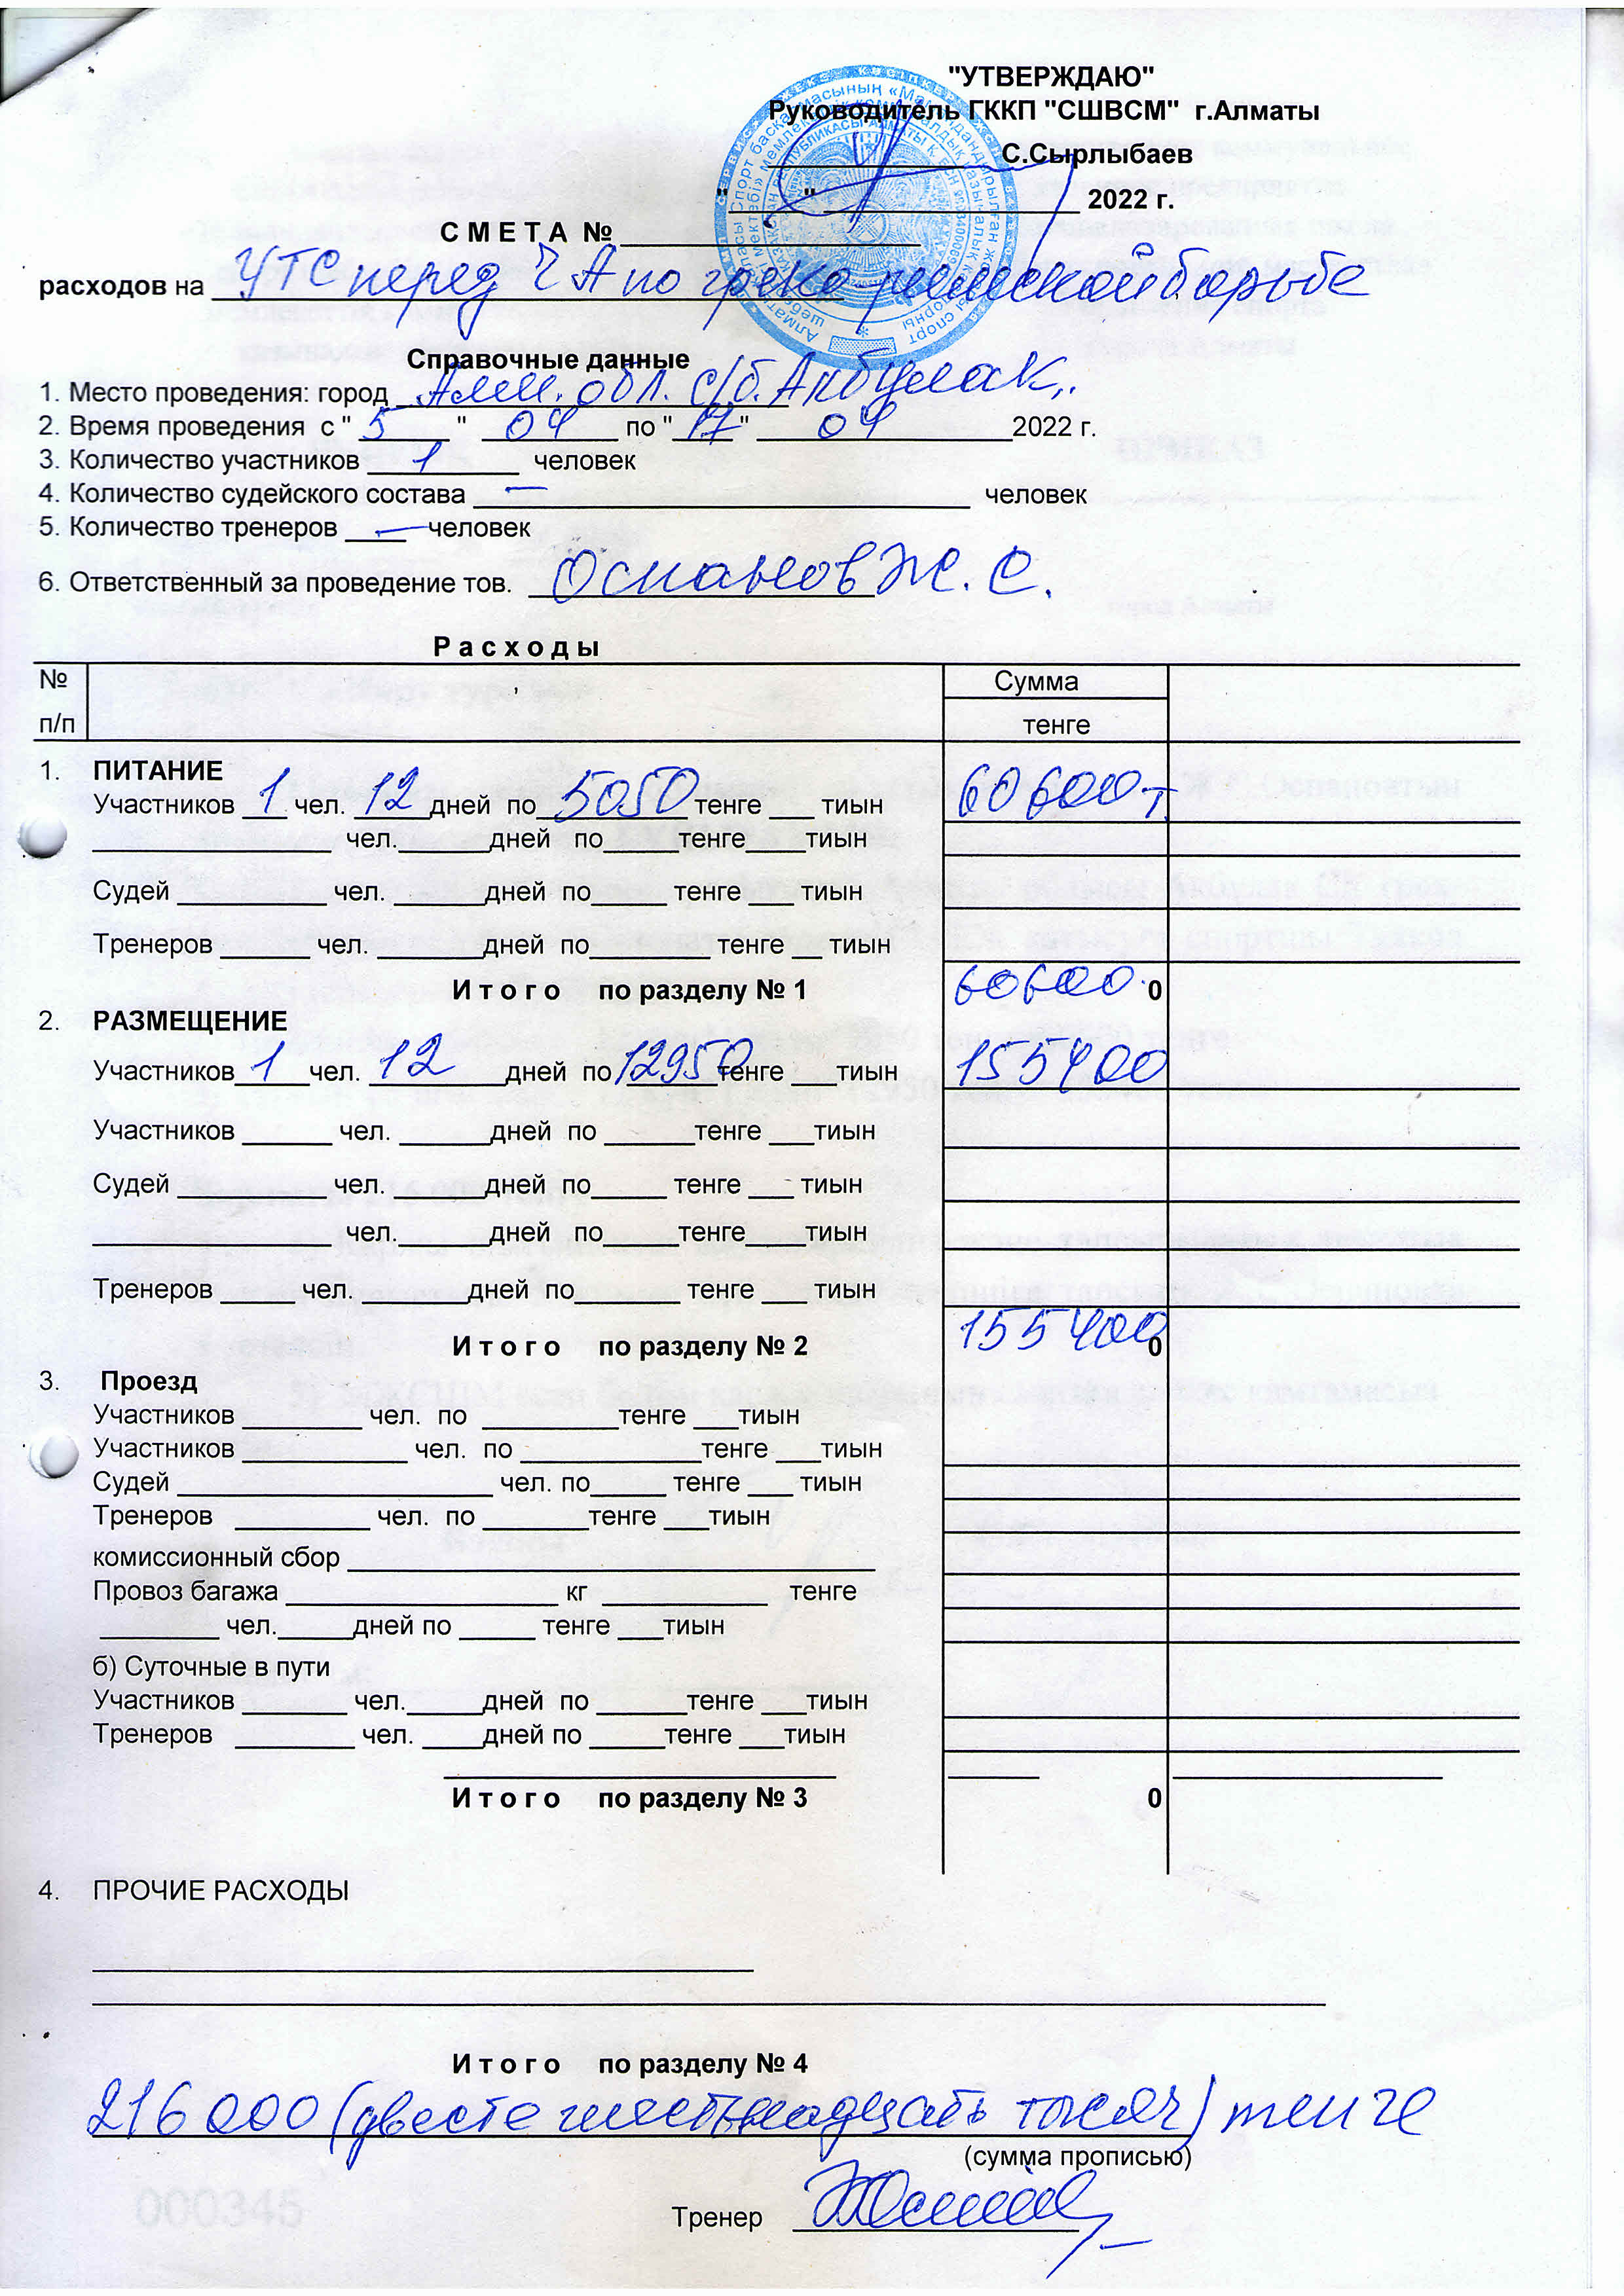 "УТВЕРЖДАЮ"
Руководитель ГККП "СШВСМ" г.Алматы
С.Сырлыбаев
"____" ____________ 2022 г.
С М Е Т А № ____________
расходов на УТС перед ЧА по греко-римской борьбе
Справочные данные
1. Место проведения: город Алм. обл. с/б. Акбулак.
2. Время проведения с " 5 " 04 по " 17 " 04 2022 г.
3. Количество участников 1 человек
4. Количество судейского состава — человек
5. Количество тренеров — человек
6. Ответственный за проведение тов. Оспанов Ж. С.
Р а с х о д ы
№ п/п Сумма
тенге
1. ПИТАНИЕ
Участников 1 чел. 12 дней по 5050 тенге ___ тиын 60600 т
____ чел.____дней по____тенге____тиын
Судей ____ чел. ____дней по____ тенге ___ тиын
Тренеров ____ чел. ____дней по____ тенге __ тиын
И т о г о по разделу № 1 60600 0
2. РАЗМЕЩЕНИЕ
Участников 1 чел. 12 дней по 12950 тенге ___тиын 155400
Участников ____ чел. ____дней по ____тенге ___тиын
Судей ____ чел. ____дней по____ тенге ___ тиын
____ чел.____дней по____тенге____тиын
Тренеров ____ чел. ____дней по____ тенге ___ тиын
И т о г о по разделу № 2 155400 0
3. Проезд
Участников ____ чел. по ____тенге ___тиын
Участников ____ чел. по ____тенге ___тиын
Судей ____ чел. по____ тенге ___ тиын
Тренеров ____ чел. по ____тенге ___тиын
комиссионный сбор ____
Провоз багажа ____ кг ____ тенге
____ чел.____дней по ____ тенге ___тиын
б) Суточные в пути
Участников ____ чел.____дней по ____тенге ___тиын
Тренеров ____ чел. ____дней по ____тенге ___тиын
И т о г о по разделу № 3 0
4. ПРОЧИЕ РАСХОДЫ
И т о г о по разделу № 4
216 000 (двести шестнадцать тысяч) тенге
(сумма прописью)
Тренер
000345